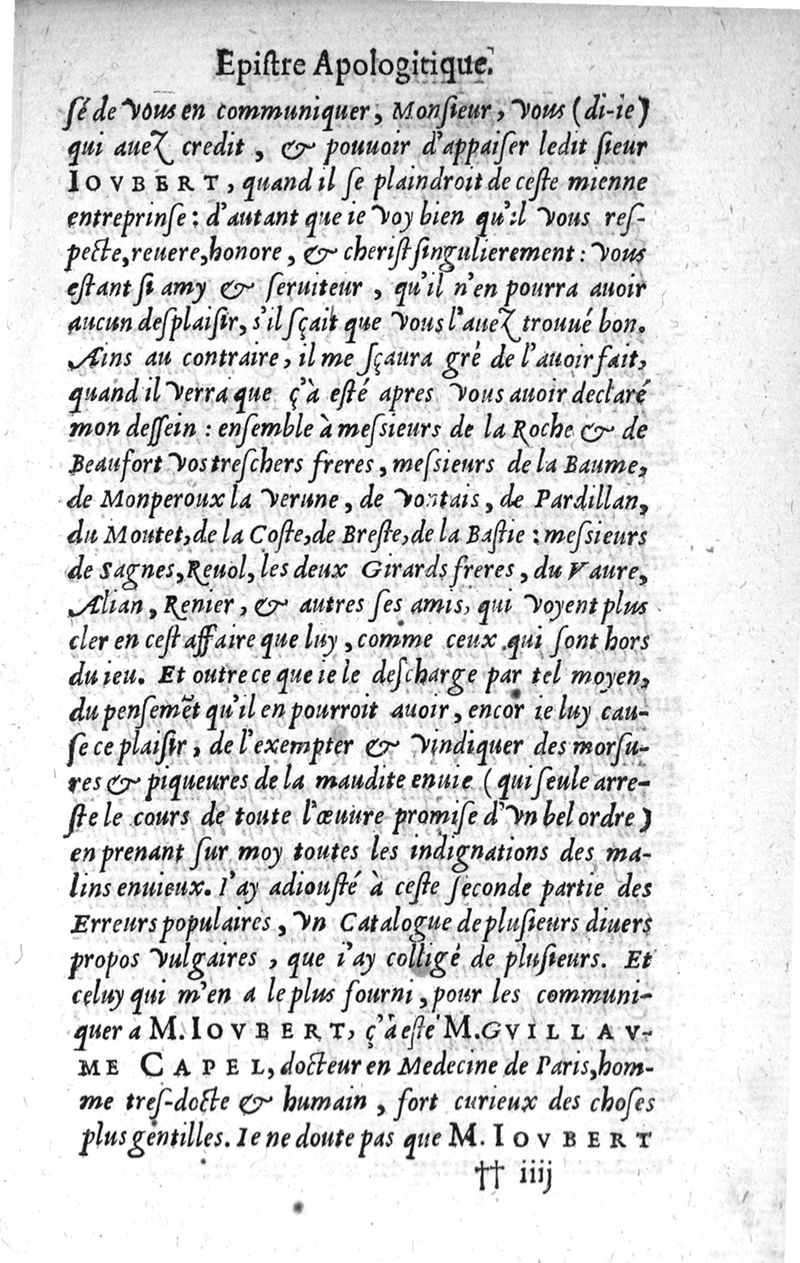 Epiſtre Apologitique.
ſé de vous en communiquer, Monſieur, vous (di-ie)
qui auez credit, & pouuoir d'appaiſer ledit ſieur
IOVBERT, quand il ſe plaindroit de ceſte mienne
entreprinſe: d'autant que ie voy bien qu'il vous reſ-
pecte, reuere, honore, & cheriſt ſingulierement: vous
eſtant ſi amy & ſeruiteur, qu'il n'en pourra auoir
aucun deſplaiſir, s'il ſçait que vous l'auez trouué bon.
Ains au contraire, il me ſçaura gré de l'auoir fait,
quand il verra que ç'à eſté apres vous auoir declaré
mon deſſein: enſemble à meſsieurs de la Roche & de
Beaufort vos treſchers freres, meſsieurs de la Baume,
de Monperoux la verune, de vontais, de Pardillan,
du Moutet, de la Coſte, de Breſte, de la Baſtie: meſsieurs
de Sagnes, Reuol, les deux Girards freres, du Vaure,
Alian, Renier, & autres ſes amis, qui voyent plus
cler en ceſt affaire que luy, comme ceux qui ſont hors
du ieu. Et outre ce que ie le deſcharge par tel moyen,
du penſemẽt qu'il en pourroit auoir, encor ie luy cau-
ſe ce plaiſir, de l'exempter & vindiquer des morſu-
res & piqueures de la maudite enuie (qui ſeule arre-
ſte le cours de toute l'œuure promiſe d'vn bel ordre)
en prenant ſur moy toutes les indignations des ma-
lins enuieux. I'ay adiouſté à ceſte ſeconde partie des
Erreurs populaires, vn Catalogue de pluſieurs diuers
propos vulgaires, que i'ay colligé de pluſieurs. Et
celuy qui m'en a le plus fourni, pour les communi-
quer a M. IOVBERT, ç'à eſté M. GVILLAV-
ME CAPEL, docteur en Medecine de Paris, hom-
me treſ-docte & humain, fort curieux des choſes
plus gentilles. Ie ne doute pas que M. IOVBERT
†† iiij